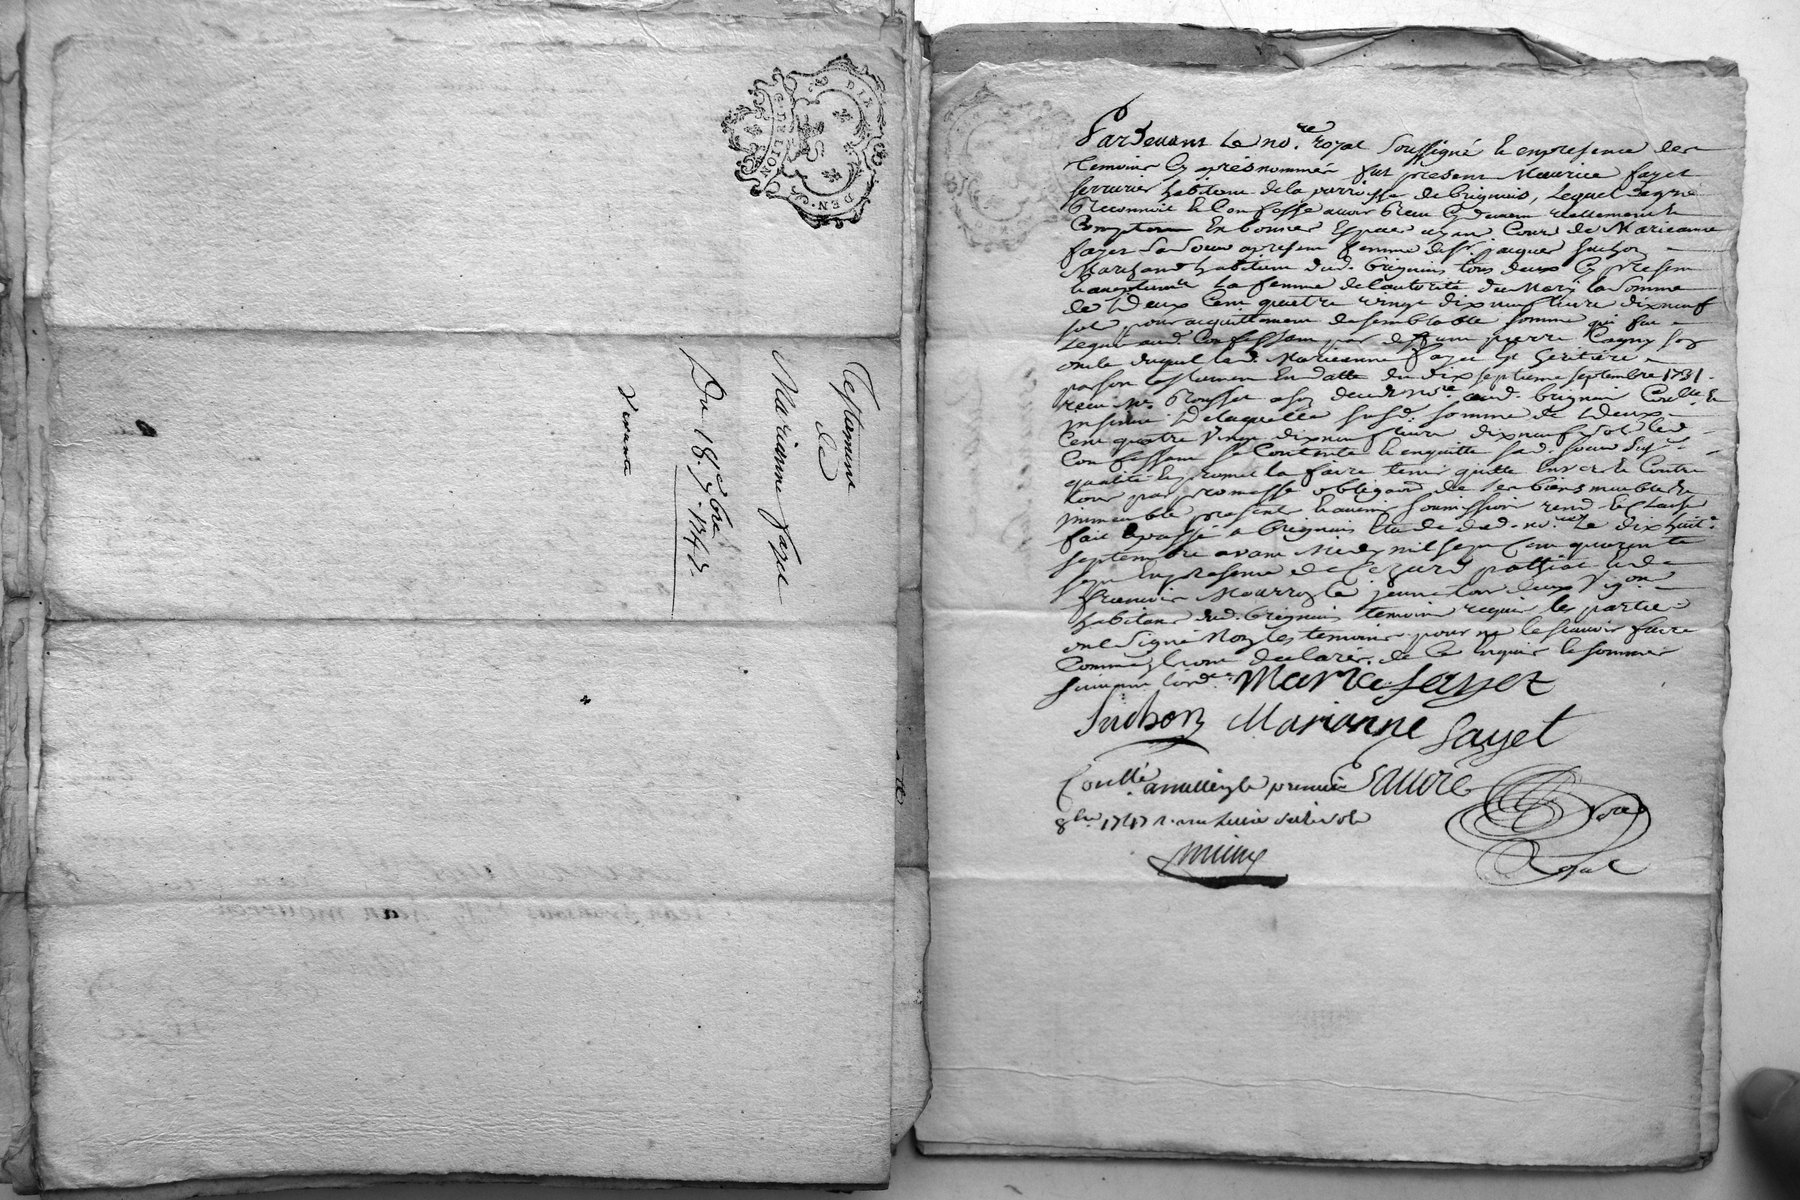 DIX
DEN.
G. DE LION
Testament
de
Marianne fayet
Du 18.e 7.bre 1747.
vivante
Pardevant le no.re royal soussigné et en presence des
temoins cy aprés nommés fut present Maurice fayet
serrurier habitant de la parroisse de brignais, lequel de gré
reconnoit et confesse avoir receu cy devant reellement et
comptant en bonnes especes ayant cours de Marianne
fayet sa soeur apresent femme de sr. jacques suchon
Marchand habitant dud. brignais tous deux cy present
et acceptant la femme de l'autorité du Mary la somme
de deux cent quatre vingt dix neuf livre dix neuf
sol pour acquittement de semblable somme qui fut
legué aud. confessant par deffunt pierre
oncle duquel lad. Marianne fayet est heritiere
par son testament en datte du dix septieme septembre 1731
receu Me. Rousset no.re aud. brignais Con.llé et
insinué de laquelle susd. somme de deux
cent quatre vingt dix neuf livre dix neuf sol led.
confessant se contente et en quitte sad. soeur
qualité et promet la faire tenir quitte envers et contre
tous par promesse obligaon. de ses biens meubles et
immeuble present et avenir soumission rend. et clause
fait et passé a brignais etude dud. no.re le dix huit
septembre avant Midy mil sept cent quarante
sept en presence de
francois Mourron le jeune tous deux vigneron
habitans dud. brignais temoins requis les partie
ont signé Non les temoins pour ne le scavoir faire
comme ils ont declarés de ce enquis et sommés
suivant l'ord.ce Morice fayet
Suchon Marianne fayet
Con.llé a millery le premier Favre
8bre 1747 r. une livre
Royal